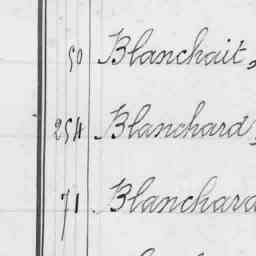 50 Blanchait,
254 Blanchard,
71 Blanchard